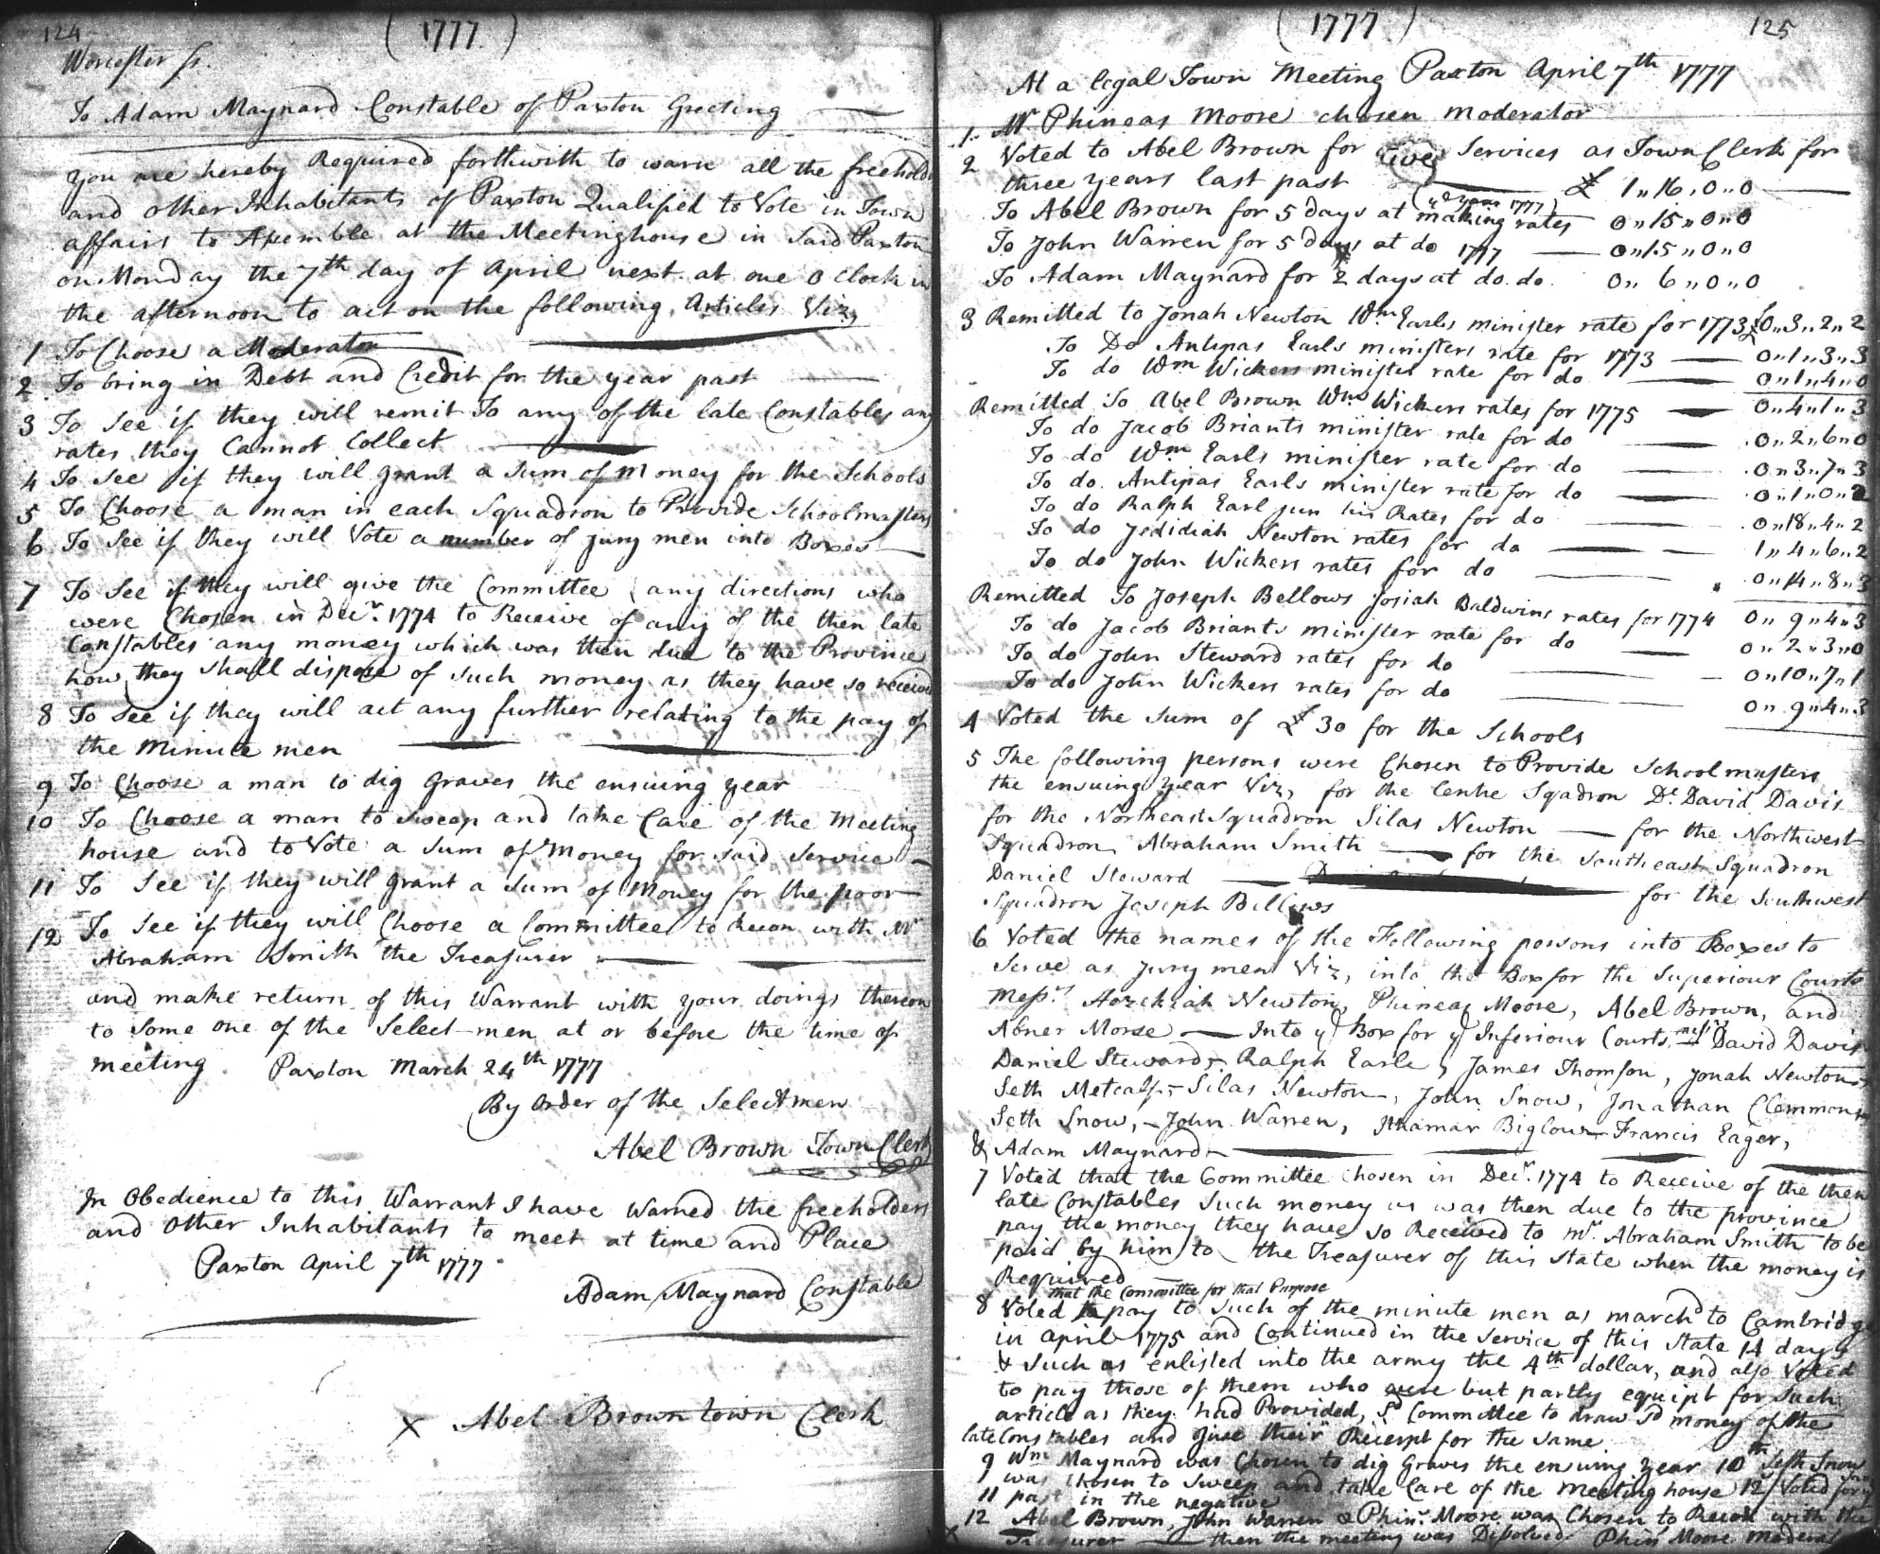 124
( 1777 )
Worcester ss.
To Adam Maynard Constable of Paxton Greeting
you are hereby Required forthwith to warn all the freehold
and other Inhabitants of Paxton Qualified to Vote in Town
affairs to Assemble at the Meetinghouse in said Paxton
on Monday the 7th day of April next at one o Clock in
the afternoon to act on the following Articles Viz,
1 To Choose a Moderator
2 To bring in Debt and Credit for the year past
3 To See if they will remit To any of the late Constables any
rates they Cannot Collect
4 To See if they will grant a Sum of money for the Schools
5 To Choose a man in each Squadron to Provide Schoolmasters
6 To See if they will Vote a number of jury men into Boxes
7 To See if they will give the Committee any directions who
were Chosen in Decr. 1774 to Receive of any of the then late
Constables any money which was then due to the Province
how they shall dispose of such money as they have so received
8 To see if they will act any further relating to the pay of
the minute men
9 To Choose a man to dig graves the ensuing year
10 To Choose a man to sweep and take Care of the Meeting
house and to Vote a Sum of money for said Service
11 To See if they will grant a Sum of money for the poor
12 To See if they will Choose a Committee to Recon with Mr
Abraham Smith the Treasurer
and make return of this Warrant with your doings thereon
to Some one of the Select-men at or before the time of
meeting Paxton March 24th 1777
By order of the Selectmen
Abel Brown Town Clerk
In Obedience to this Warrant I have Warned the freeholders
and other Inhabitants to meet at time and Place
Paxton April 7th 1777
Adam Maynard Constable
X Abel Brown town Clerk
( 1777 )
125
At a legal Town Meeting Paxton April 7th 1777
1 Mr Phineas Moore chosen moderator
2 Voted to Abel Brown for Services as Town Clerk for
three years last past £ 1,,16,,0,,0
To Abel Brown for 5 days at making rates 0,,15,,0,,0
To John Warren for 5 days at do 1777 0,,15,,0,,0
To Adam Maynard for 2 days at do. do. 0,,6,,0,,0
3 Remitted to Jonah Newton Wm. Earls minister rate for 1773 £0,,3,,2,,2
To Do Antipas Earls ministers rate for 1773 0,,1,,3,,3
To do Wm Wickers minister rate for do 0,,1,,4,,0
Remitted To Abel Brown Wm Wickers rates for 1775 0,,4,,1,,3
To do Jacob Briants minister rate for do 0,,2,,6,,0
To do Wm Earls minister rate for do 0,,3,,7,,3
To do. Antipas Earls minister rate for do 0,,1,,0,,2
To do Ralph Earl jun his Rates for do 0,,18,,4,,2
To do Jedidiah Newton rates for do 1,,4,,6,,2
To do John Wickers rates for do 0,,14,,8,,3
Remitted To Joseph Bellows Josiah Baldwins rates for 1774 0,,9,,4,,3
To do Jacob Briants minister rate for do 0,,2,,3,,0
To do John Steward rates for do 0,,10,,7,,1
To do John Wickers rates for do 0,,9,,4,,3
4 Voted the Sum of £ 30 for the Schools
5 The following persons were Chosen to Provide Schoolmasters
the ensuing year Viz, for the Centre Sqadron Dr. David Davis
for the Northeast Squadron Silas Newton for the Northwest
Squadron, Abraham Smith for the Southeast Squadron
Daniel Steward
for the Southwest
Squadron Joseph Bellows
6 Voted the names of the Following persons into Boxes to
Serve as Jury men Viz, into the Box for the Superiour Courts
Messrs Hezekiah Newton, Phineas Moore, Abel Brown, and
Abner Morse Into ye Box for ye Inferiour Courts, messrs David Davis
Daniel Steward, Ralph Earle, James Thomson, Jonah Newton,
Seth Metcalf, Silas Newton, John Snow, Jonathan Clemmons
Seth Snow, John Warren, Ithamar Biglow Francis Eager,
& Adam Maynard
7 Voted that the Committee Chosen in Decr. 1774 to Receive of the then
late Constables Such money as was then due to the province
pay the money they have so Received to mr. Abraham Smith to be
paid by him to the Treasurer of this State when the money is
Required
that the Committee for that Purpose
8 Voted pay to Such of the minute men as marchd to Cambridge
in april 1775 and Continued in the Service of this State 14 days
& Such as enlisted into the army the 4th dollar, and also Voted
to pay those of them who were but partly equipt for Such
article as they had Provided, sd Committee to draw sd money of the
late Constables and give their Receipt for the Same
9 Wm Maynard was Chosen to dig Graves the ensuing year 10th Seth Snow
was Chosen to Sweep and take Care of the Meeting house 12/ Voted for
11 past in the negative
12 Abel Brown, John Warren & Phins. Moore was Chosen to Recon with the
Treasurer then the meeting was Disolved Phins Moore Moderator